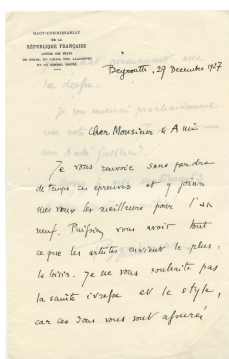 HAUT-COMMISSARIAT
DE LA
RÉPUBLIQUE FRANÇAISE
AUPRÈS DES ÉTATS
DE SYRIE, DU LIBAN, DES ALAOUITES
ET DU DJEBEL DRUZE
Beyrouth, 29 Décembre 1927
Cher Monsieur et Ami
Je vous renvoie sans perdre
de temps ces épreuves et y joins
mes vœux les meilleurs pour l'an
neuf. Puissiez vous avoir tout
ce que les artistes envient le plus :
le loisir. Je ne vous souhaite pas
la santé et le style,
car ces dons vous sont assurés